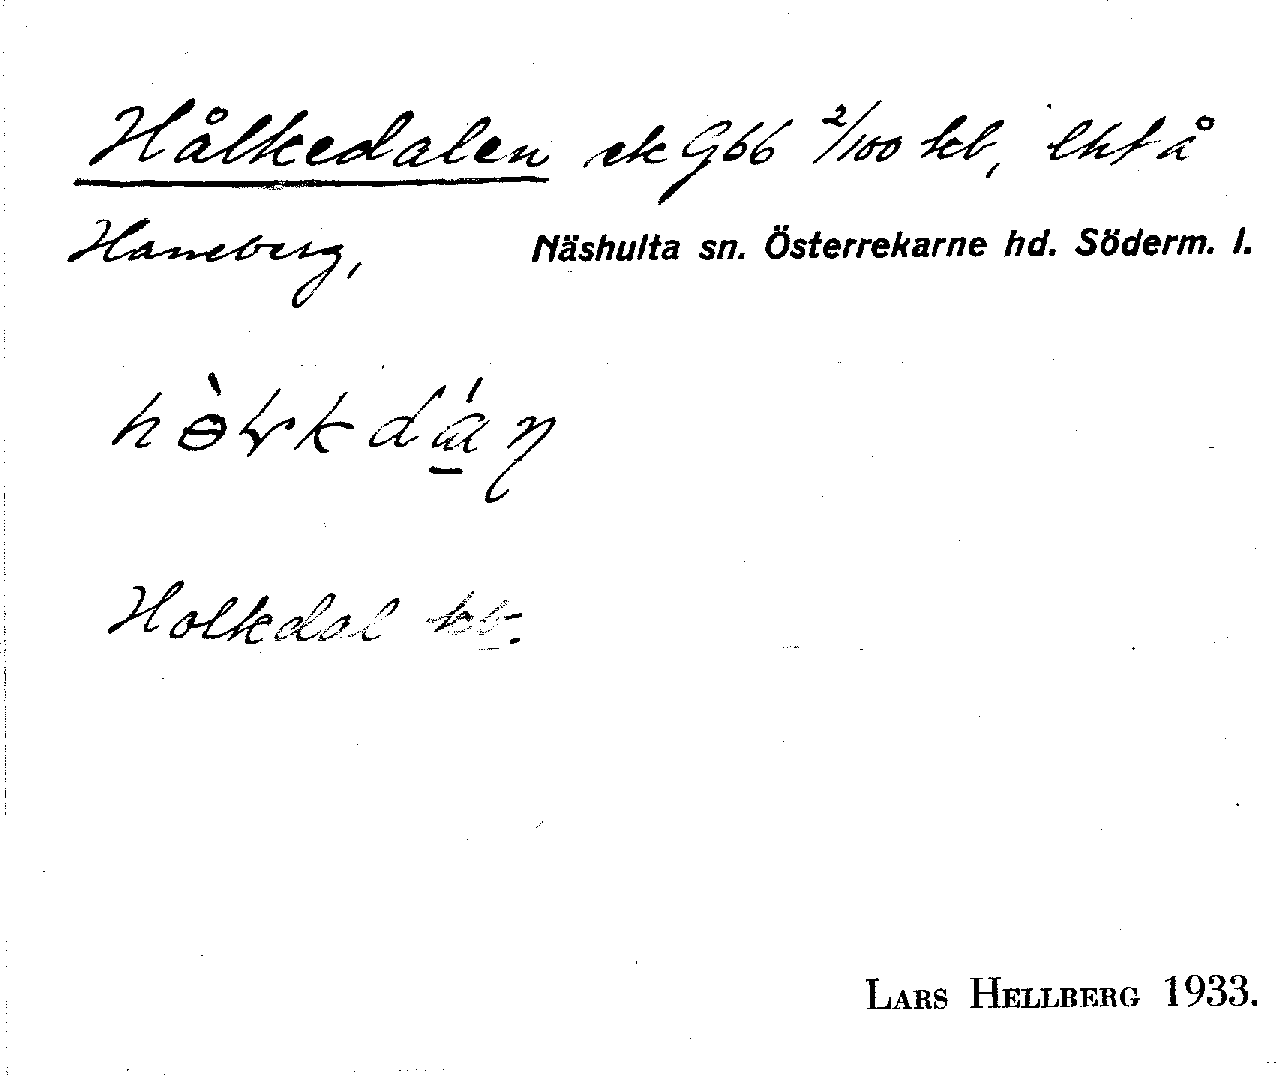 Hålkedalen ek 966 2/100 kb, lht å
Haneberg, Näshulta sn. Österrekarne hd. Söderm. l.
Holkdal kb.
LARS HELLBERG 1933.